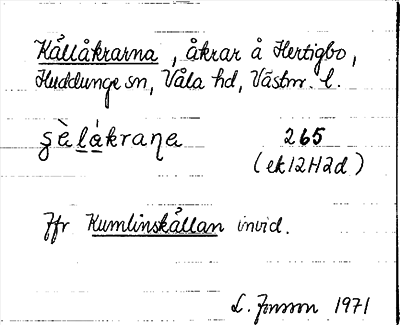 Kållåkrarna, åkrar å Hertigbo,
Huddunge sn, Våla hd, Västm. l.
sèlákraṇa 265
(ek 12H2d)
Jfr Kumlinskållan invid.
L. Jonsson 1971